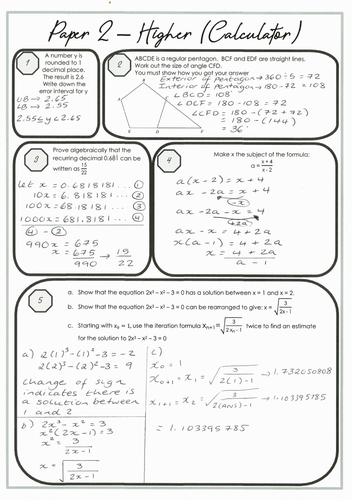 Paper 2 - Higher (Calculator)
1
A number y is
rounded to 1
decimal place.
The result is 2.6
Write down the
error interval for y
UB → 2.65
LB → 2.55
2.55 ≤ y < 2.65
2
ABCDE is a regular pentagon. BCF and EDF are straight lines.
Work out the size of angle CFD.
You must show how you got your answer
Exterior of Pentagon → 360 ÷ 5 = 72
Interior of Pentagon → 180 - 72 = 108
∠BCD = 108
∠DCF = 180 - 108 = 72
∠CFD = 180 - (72 + 72)
= 180 - (144)
= 36
3
Prove algebraically that the
recurring decimal 0.681 can be
written as 15/22
Let x = 0.6818181 ... ①
10x = 6.818181 ... ②
100x = 68.18181 ... ③
1000x = 681.8181 ... ④
④ - ②
990x = 675
x = 675/990 → 15/22
4
Make x the subject of the formula:
a = (x + 4)/(x - 2)
a(x - 2) = x + 4
ax - 2a = x + 4
-x
ax - 2a - x = 4
+2a
ax - x = 4 + 2a
x(a - 1) = 4 + 2a
x = (4 + 2a)/(a - 1)
5
a. Show that the equation 2x³ - x² - 3 = 0 has a solution between x = 1 and x = 2.
b. Show that the equation 2x³ - x² - 3 = 0 can be rearranged to give: x = √(3/(2x - 1))
c. Starting with x₀ = 1, use the iteration formula xₙ₊₁ = √(3/(2xₙ - 1)) twice to find an estimate
for the solution to 2x³ - x² - 3 = 0
a) 2(1)³ - (1)² - 3 = -2
2(2)³ - (2)² - 3 = 9
Change of sign
indicates there is
a solution between
1 and 2
b) 2x³ - x² = 3
x²(2x - 1) = 3
x² = 3/(2x - 1)
x = √(3/(2x - 1))
c)
x₀ = 1
x₀₊₁ = x₁ = √(3/(2(1) - 1)) → 1.732050808
x₁₊₁ = x₂ = √(3/(2(ANS) - 1)) → 1.103395785
= 1.103395785